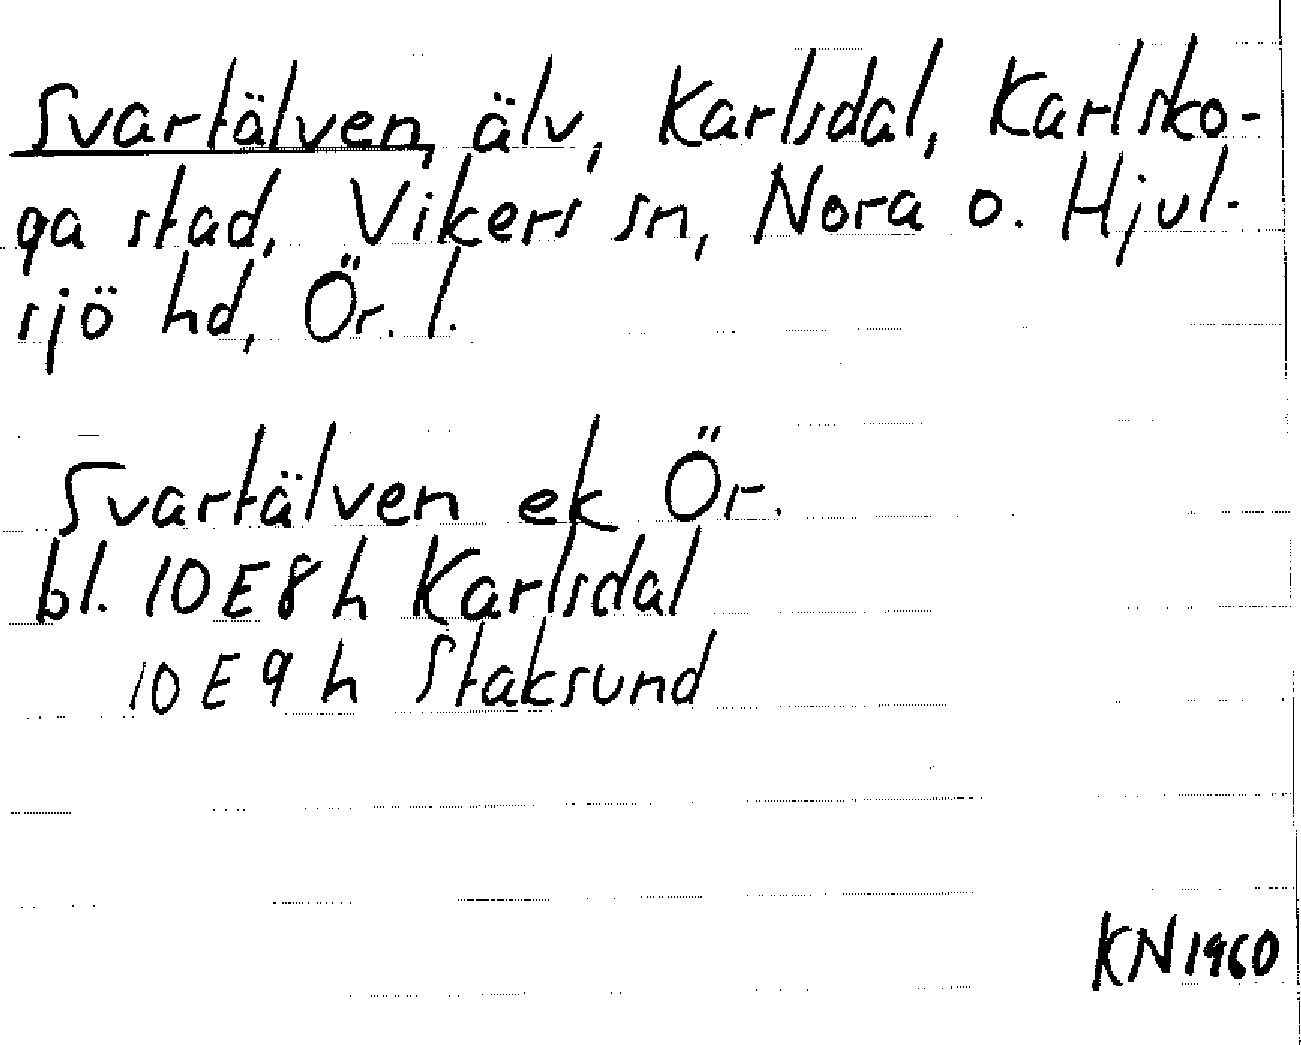 Svartälven, älv, Karlsdal, Karlsko-
ga stad, Vikers sn, Nora o. Hjul-
sjö hd, Ör. l.
Svartälven ek Ör.
bl. 10E8h Karlsdal
10E9h Staksund
KN1960